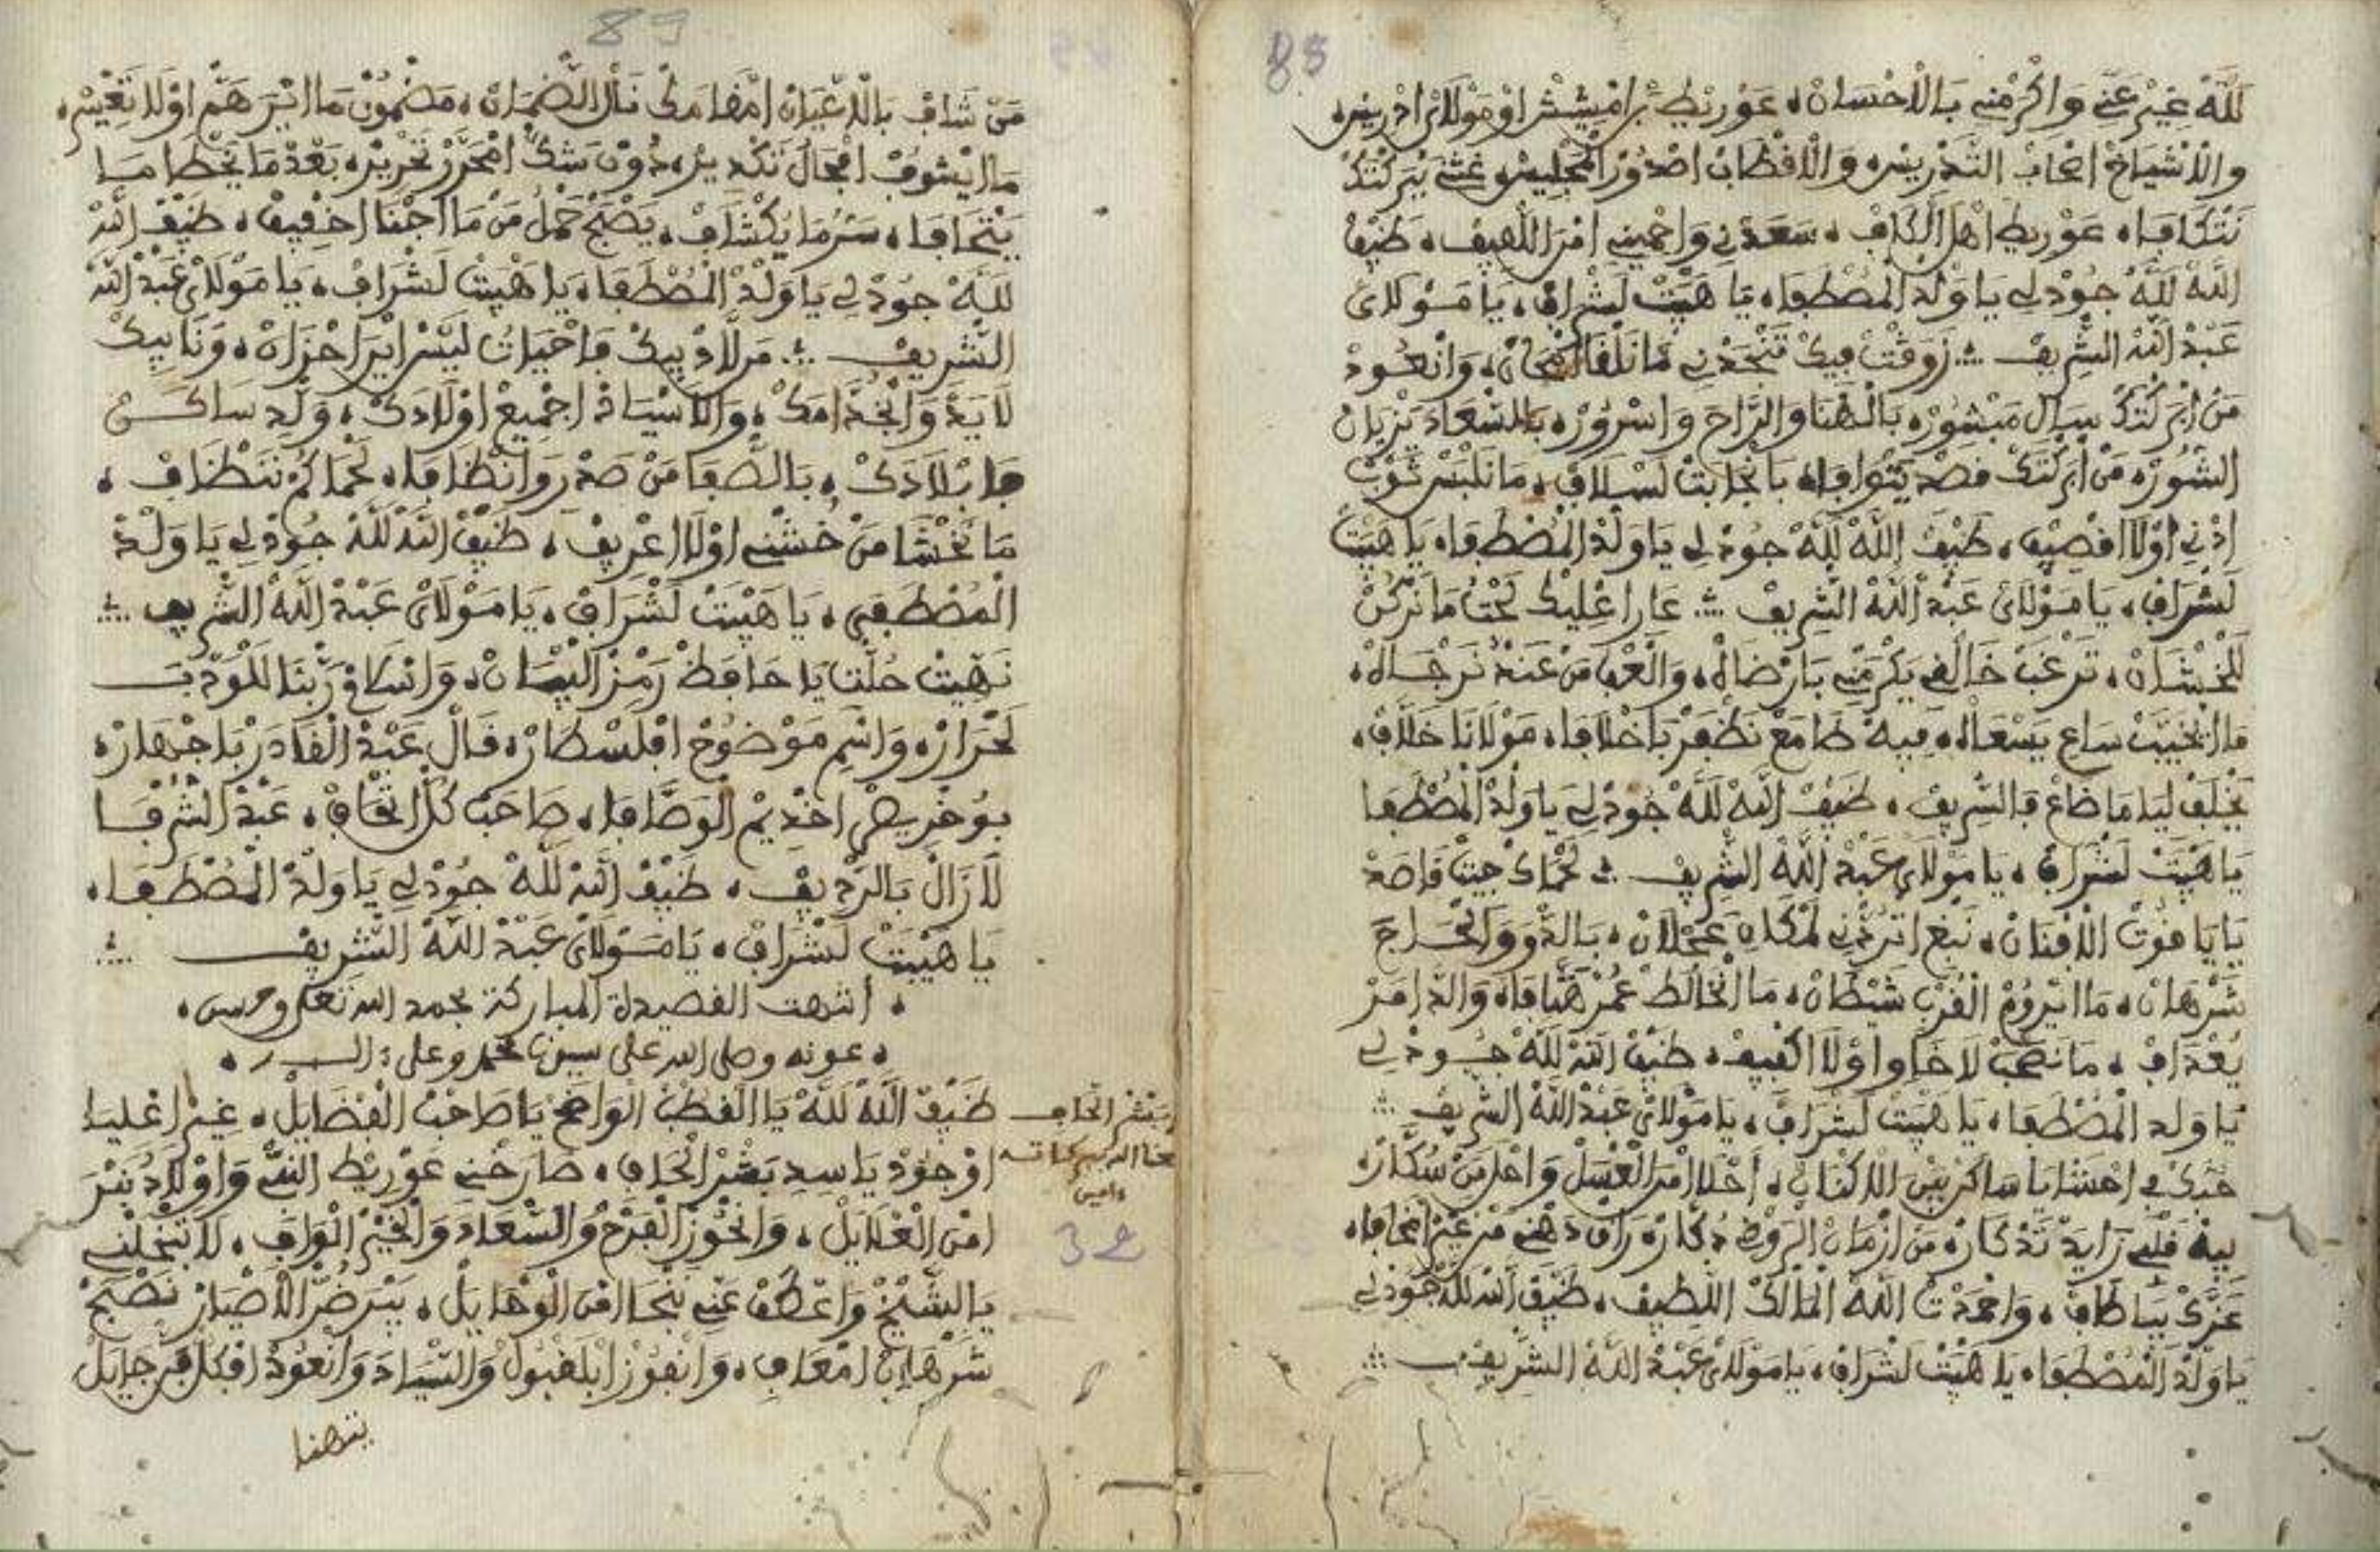 88
للَّهْ غِيرْ عَنِّي وَاكْرَمْنِي بَالْاحْسَانْ، عَوْريط بَرْ امْشِيشْ اوْ مَوْلَايْ ادْرِيسْ،
والاشْيَاخْ اصْحَابْ التَّدْرِيسْ، وَالْاقْطَابْ اصْدُورْ الْمَجْلِيسْ، غثني بَبَرْكْتَكْ
نَتْكَافَا، عَوْريط اهْل الْكَافْ، سَعَدْنِي وَاحْمِينِي امْرَ اللّهِيفْ، ضَيْفْ
اللَّهْ للَّهْ جُودْ لِي يا وَلْدْ الْمُصْطَفَا، يَا هَيْبَتْ لَشْرَافْ، يَا مَوْلَايْ
عَبْدْ اللَّهْ الشْرِيفْ ∴ رَوَقْتْ فِيكْ تَنْجَدْنِي مَا نَلْقَا امْحَانْ، وَانْعُودْ
مَنْ ابَرْكْتَكْ سِبَالْ مَبْشُورْ، بَالْهْنَا وَالرَّاحَ وَاسْرُورْ، بَالسّْعَادَ يَزْيَانْ
السُّورْ، مَنْ ابَرْكْتَكْ قَصْدْ يَتْوَافَا، بَا نْجَابَتْ لَسْلَافْ، مَا نَلْبَسْ ثَوْبْ
ادْنِي اوْلَا اقْصِيفْ، ضَيْفْ اللَّهْ للَّهْ جُودْ لِي يَا وَلْدْ الْمُصْطَفَا، يَا هَيْبَتْ
لَشْرَافْ، يَا مَوْلَايْ عَبْدْ اللَّهْ الشْرِيفْ ∴ عَارْ اعْلِيكْ تَحْتْ مَا نَرْكَنْ
لَلْخَشَانْ، نَرْغَبْ خَالْقِي يَكْرَمْنِي بَارْضَاهْ، وَالْعْفْ مَنْ عَنْدْ نَرْجَاهْ،
مَا ايْخَيَّبْ سَاعِ يَسْعَاهْ، فِيهْ طَامَعْ نَظْفَرْ بَاخْلَافَا، مَوْلَانَا خَلَّافْ،
يَخْلَفْ لِيَا مَا ضَاعْ فَالشْرِيفْ، ضَيْفْ اللَّهْ للَّهْ جُودْ لِي يَا وَلْدْ الْمُصْطَفَا
يَا هَيْبَتْ لَشْرَافْ، يَا مَوْلَايْ عَبْدْ اللَّهْ الشْرِيفْ ∴ لَحْمَاكْ جِيتْ قَاصَدْ
يَا يَا غُوتْ الْافْنَانْ، نَبْغِ اتَرْدْنِي لَمْكَانِ عَجْلَانْ، بَالدْوَ وَالْخْرَاجْ
شَرْهَانْ، مَا ايْرُومْ الْقُرْبْ شَيْطَانْ، مَا انْخَالَطْ عُمْرْ هَتَّافَا، وَالدّْامَرْ
يَعْدَافْ، مَا نَصْحَبْ لَا خَاوْ اوْلَا اكْفِيفْ، ضَيْفْ اللَّهْ للَّهْ جُودْ لِي
يَا وَلْد الْمُصْطَفَا، يَا هَيْبَتْ لَشْرَافْ، يَا مَوْلَايْ عَبْدْ اللَّهْ الشْرِيفْ ∴
حَبَّكْ فِي احْشَايَا سَاكَنْ بَيْنْ الْاكْنَانْ، أَحْلَا امْنَ الْعْسَلْ وَاحْلَ مَنْ سُكَّارْ،
بِيهْ قَلْبِي زَايَدْ تَدْكَارْ، مَنْ ازْمَانْ الْرَوْضْ دْكَارْ، رَاقْ دَهْنِي مَنْ غِيرْ اسْخَافَا،
عَزَّكْ بِيَا طَافْ، وَاحْمَدْتْ اللَّهْ الْمَالَكْ اللّطِيفْ، ضَيْفْ اللَّهْ للَّهْ جُودْ لِي
يَا وَلْدْ الْمُصْطَفَا، يَا هَيْبَتْ لَشْرَافْ، يَا مَوْلَايْ عَبْدْ اللَّهْ الشْرِيفْ ∴
89
مَنْ شَافْ بَالْاعْيَانْ امْقَامَكْ نَالْ الضْمَانْ، مَضْمُونْ مَا ايْرَ هَمّْ اوْلَا تَغْيِيسْ،
مَا ايْشُوفْ امْجَالْ تَكْدِيرْ، دُونْ شَكّْ امْحَرَّرْ تَحْرِيرْ، بَعْدْ مَا يَخْطَا مَا
يَتْحَافَا، سَرّْ مَا يُكْشَافْ، يَصْبَحْ حَمْلُ مَنْ مَا اجْفَا اخْفِيفْ، ضَيْفْ اللَّهْ
للَّهْ جُودْ لِي يَا وَلْدْ الْمُصْطَفَا، يَا هَيْبَتْ لَشْرَافْ، يَا مَوْلَايْ عَبْدْ اللَّهْ
الشْرِيفْ ∴ مَرْ لَادْ بِيكْ فَاحْيَاتُ لَيْسْ ايْرَ احْزَانْ، وَنَا بِيكْ
لَايَدْ وَالْخُدَّامَكْ، وَالَاسْيَادْ اجْمِيعْ اوْلَادَكْ، وَلِّدِ سَاكَنْ
فَابْلَادَكْ، بَالصّْفَا مَنْ صَدْرِ وَانْظَافَا، لَحْمَاكُمْ نَنْظَافْ،
مَا نَخْشَا مَنْ خَشْنِي اوْلَا اعْرِيفْ، ضَيْفْ اللَّهْ للَّهْ جُودْ لِي يَا وَلْدْ
الْمُصْطَفَى، يَا هَيْبَتْ لَشْرَافْ، يَا مَوْلَايْ عَبْدْ اللَّهْ الشْرِيفْ ∴
نَهِيتْ حُلّْتِ يَا حَافَظْ رَمْزْ الْبْيَانْ، وَانْسَاقْ رَبّْنَا لَلْمَوْدَبْ
لَحْرَارْ، وَاسْمِ مَوْضُوحْ افْلَسْطَارْ، قَالْ عَبْدْ الْقَادَرْ بَاجْهَارْ،
بُوخْرِيصْ اخْدِيمْ الْوَصَّافَا، صَاحَبْ كُلّْ اتْحَافْ، عَبْدْ الشُّرْفَا
لَا زَالْ بَالرّْدِيفْ، ضَيْفْ اللَّهْ للَّهْ جُودْ لِي يَا وَلْدْ الْمُصْطَفَا،
يَا هَيْبَتْ لَشْرَافْ، يَا مَوْلَايْ عَبْدْ اللَّهْ الشْرِيفْ ∴
، انتهت القصيدة المباركة بحمد الله تعلى وحسن،
، عونه وصلى الله على سيدنا محمد وعلى
بشر الحاف
نفعنا الله ببركاته
ءامين
32
ضَيْفْ اللَّهْ للَّهْ يَا الْقُطْبْ الْوَاضَحْ يَا صَاحَبْ الْفْضَايَلْ، غِيرْ اعْلِيَا
اوْ جُودْ يَا سِيدِ بَشْرْ الْحَافِ، صَارَخْنِي عَوْريطْ النْبِي وَاوْلَادُ نَبْرَ
امْنَ الْعْلَايَلْ، وَانْحُوزْ الْفَرْحْ وَالسّْعَادَ وَالْخَيْرْ الْوَافِ، لَا تَبْخَلْنِي
يَا الشَّيْخْ وَاعْطَفْ عَنِّي نَنْجَا امْنَ الْوْهَايَلْ، يَبْرَ ضُرّْ الْاضْيَارْ نَصْبَحْ
شَرْهَانْ امْعَافِ، وَانْفُوزْ ابْلَقْبُولْ وَالسّْيَادَ وَانْعُودْ افْكُلّْ فَرْجَ جَايَلْ
يتهنا